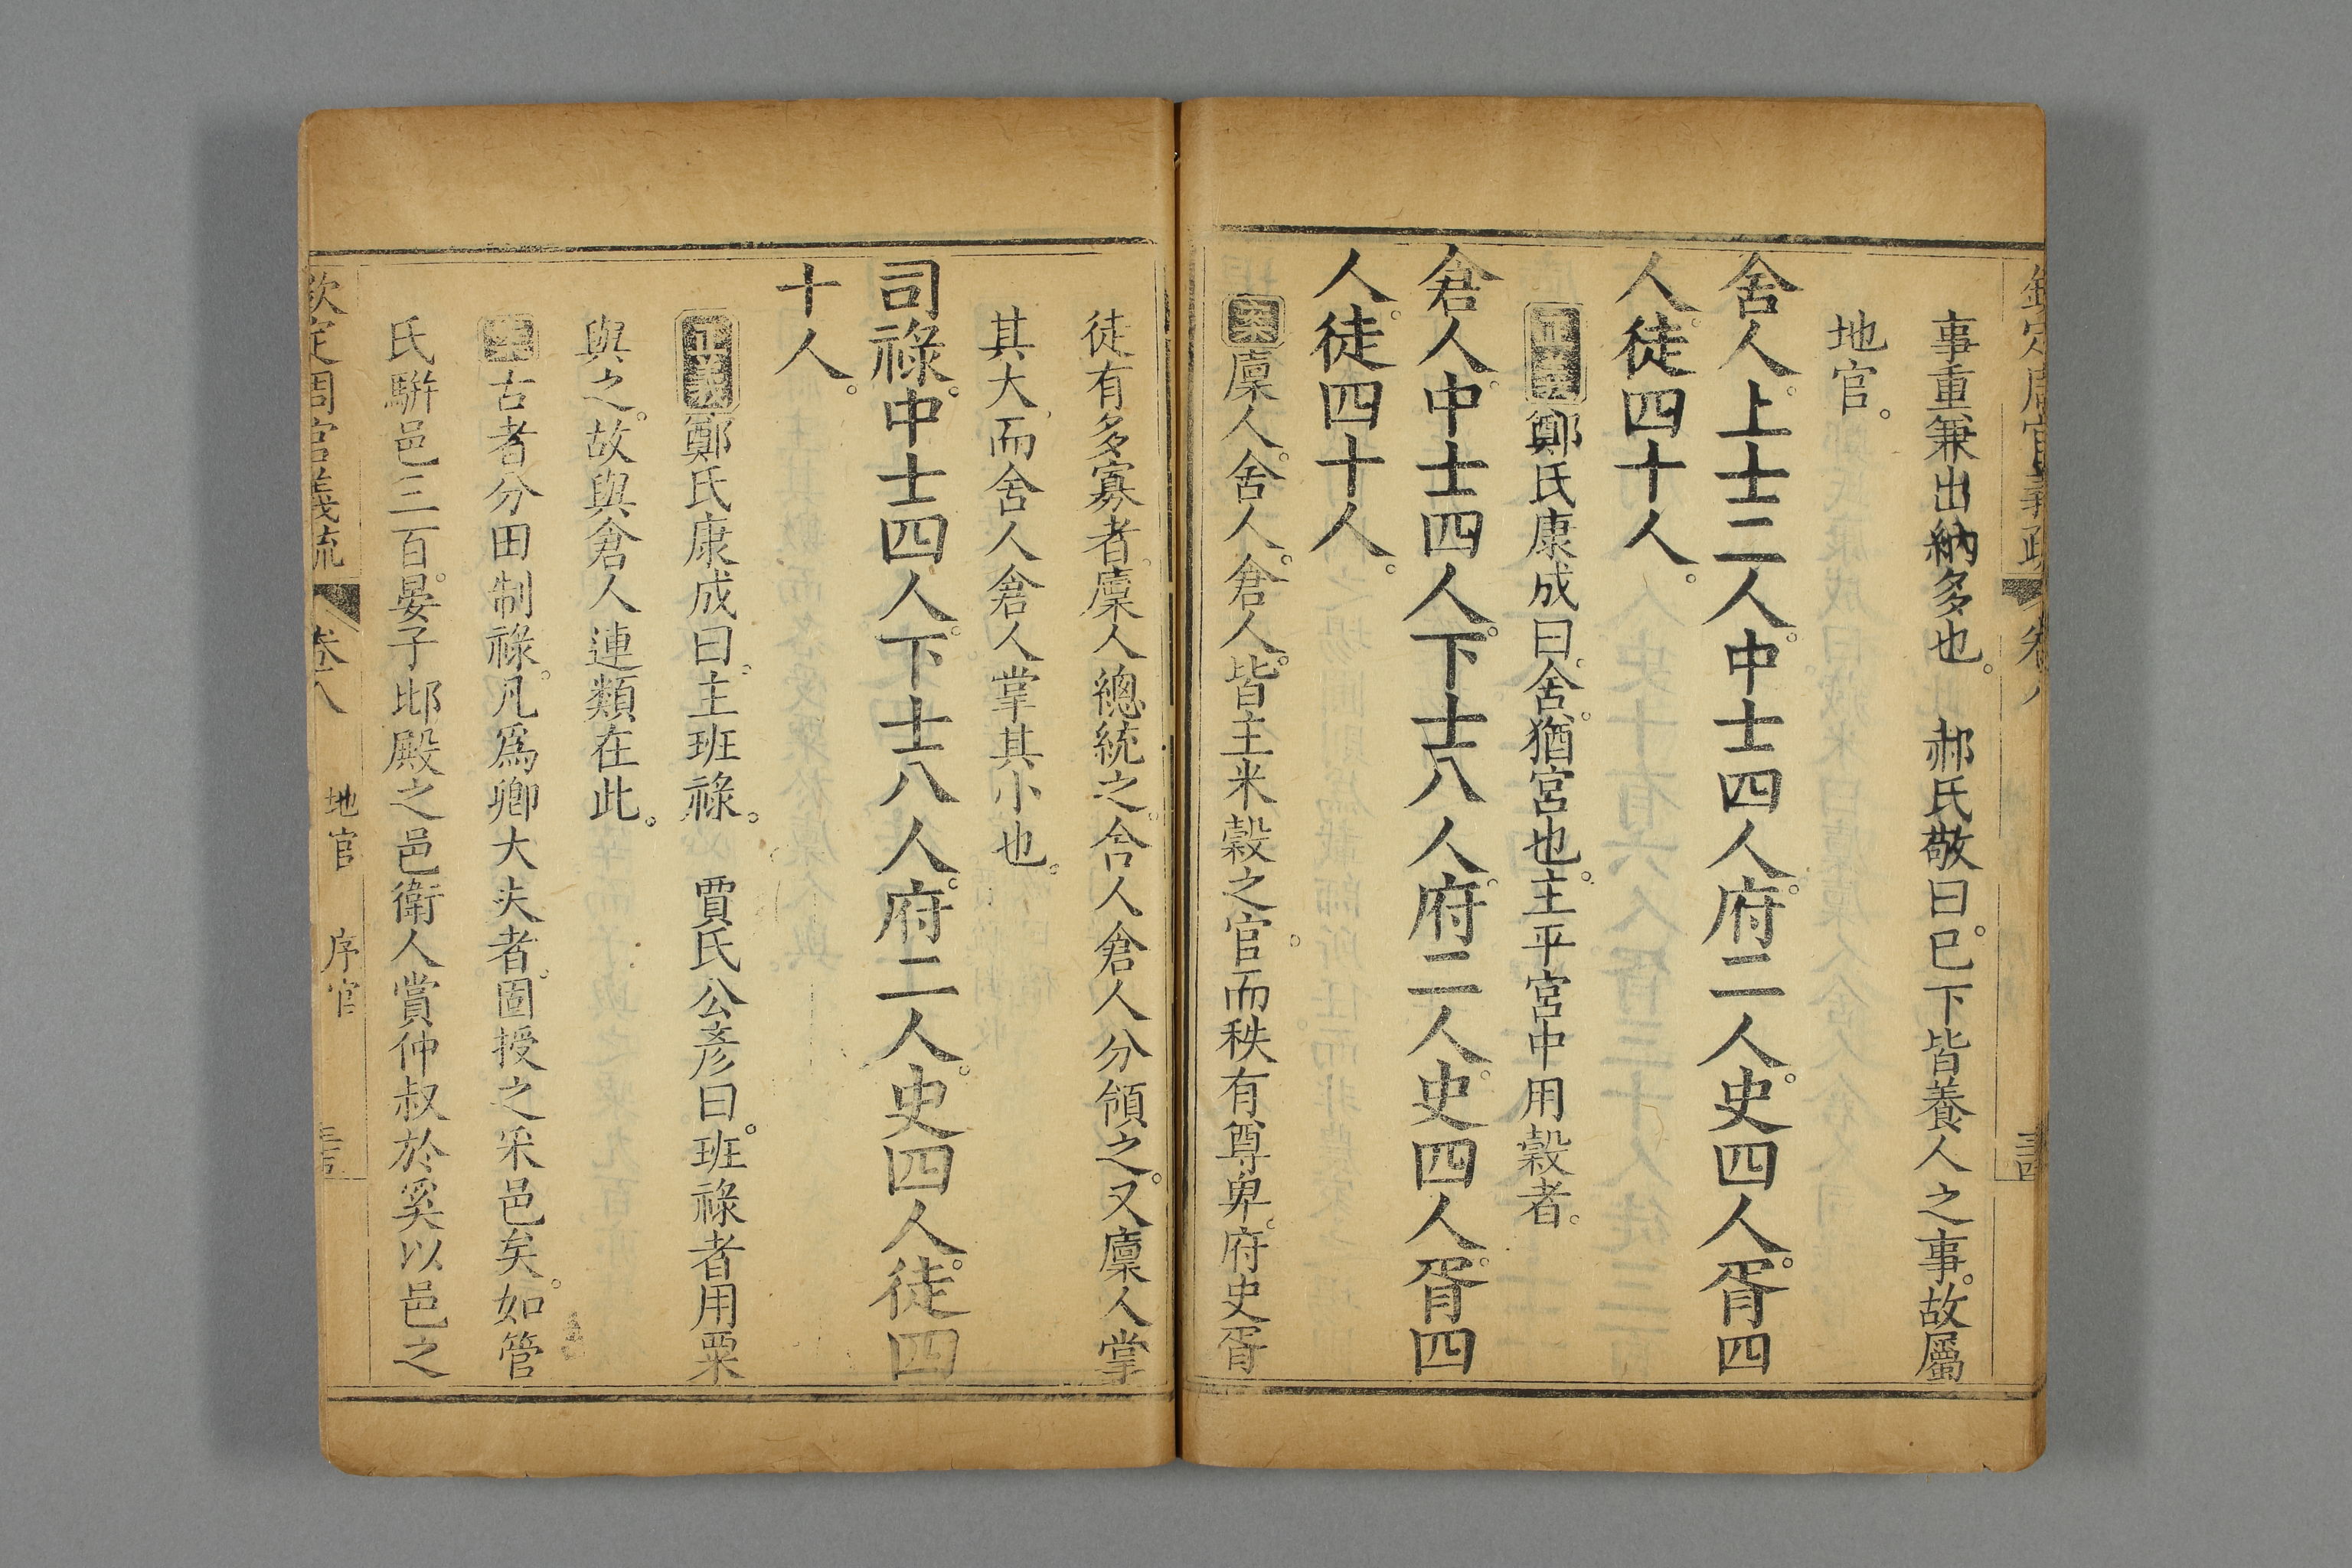 欽定周官義疏 卷八
事重兼出納多也。 郝氏敬曰。巳下皆養人之事。故屬
地官。
舍人。上士二人。中士四人。府二人。史四人。胥四
人。徒四十人。
正義鄭氏康成曰。舍。猶宮也。主平宮中用穀者。
倉人。中士四人。下士八人。府二人。史四人。胥四
人。徒四十人。
案廩人。舍人。倉人。皆主米穀之官。而秩有尊卑。府史胥
徒有多寡者。廩人總統之。舍人倉人分領之。又廩人掌
其大。而舍人倉人掌其小也。
司祿。中士四人。下士八人。府二人。史四人。徒四
十人。
正義鄭氏康成曰。主班祿。 賈氏公彥曰。班祿者用粟
與之。故與倉人連類在此。
案古者分田制祿。凡爲卿大夫者。固授之采邑矣。如管
氏騈邑三百。晏子邶殿之邑衛人賞仲叔於奚以邑之
欽定周官義疏 卷八 地官 序官